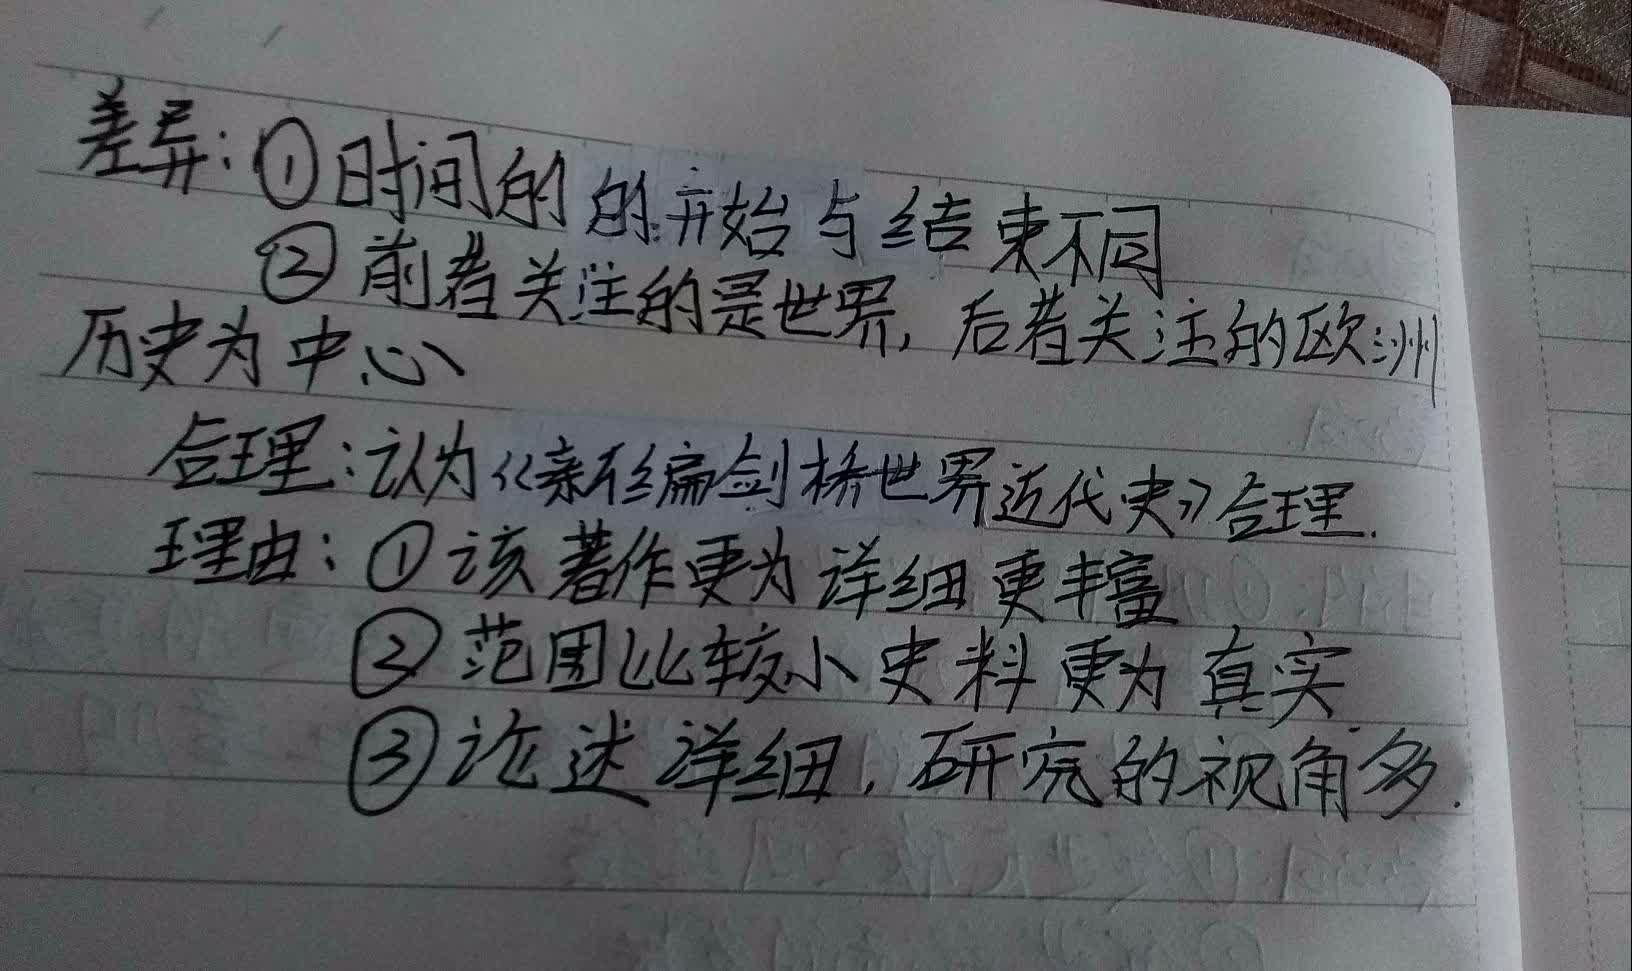 差异:①时间的的开始与结束不同
②前着关注的是世界,后着关注的欧洲
历史为中心
合理:认为《亲形编剑桥世界近代史》合理.
理由:①该著作更为详细更丰富
②范围比较小史料更为真实
③论述详细,研究的视角多.